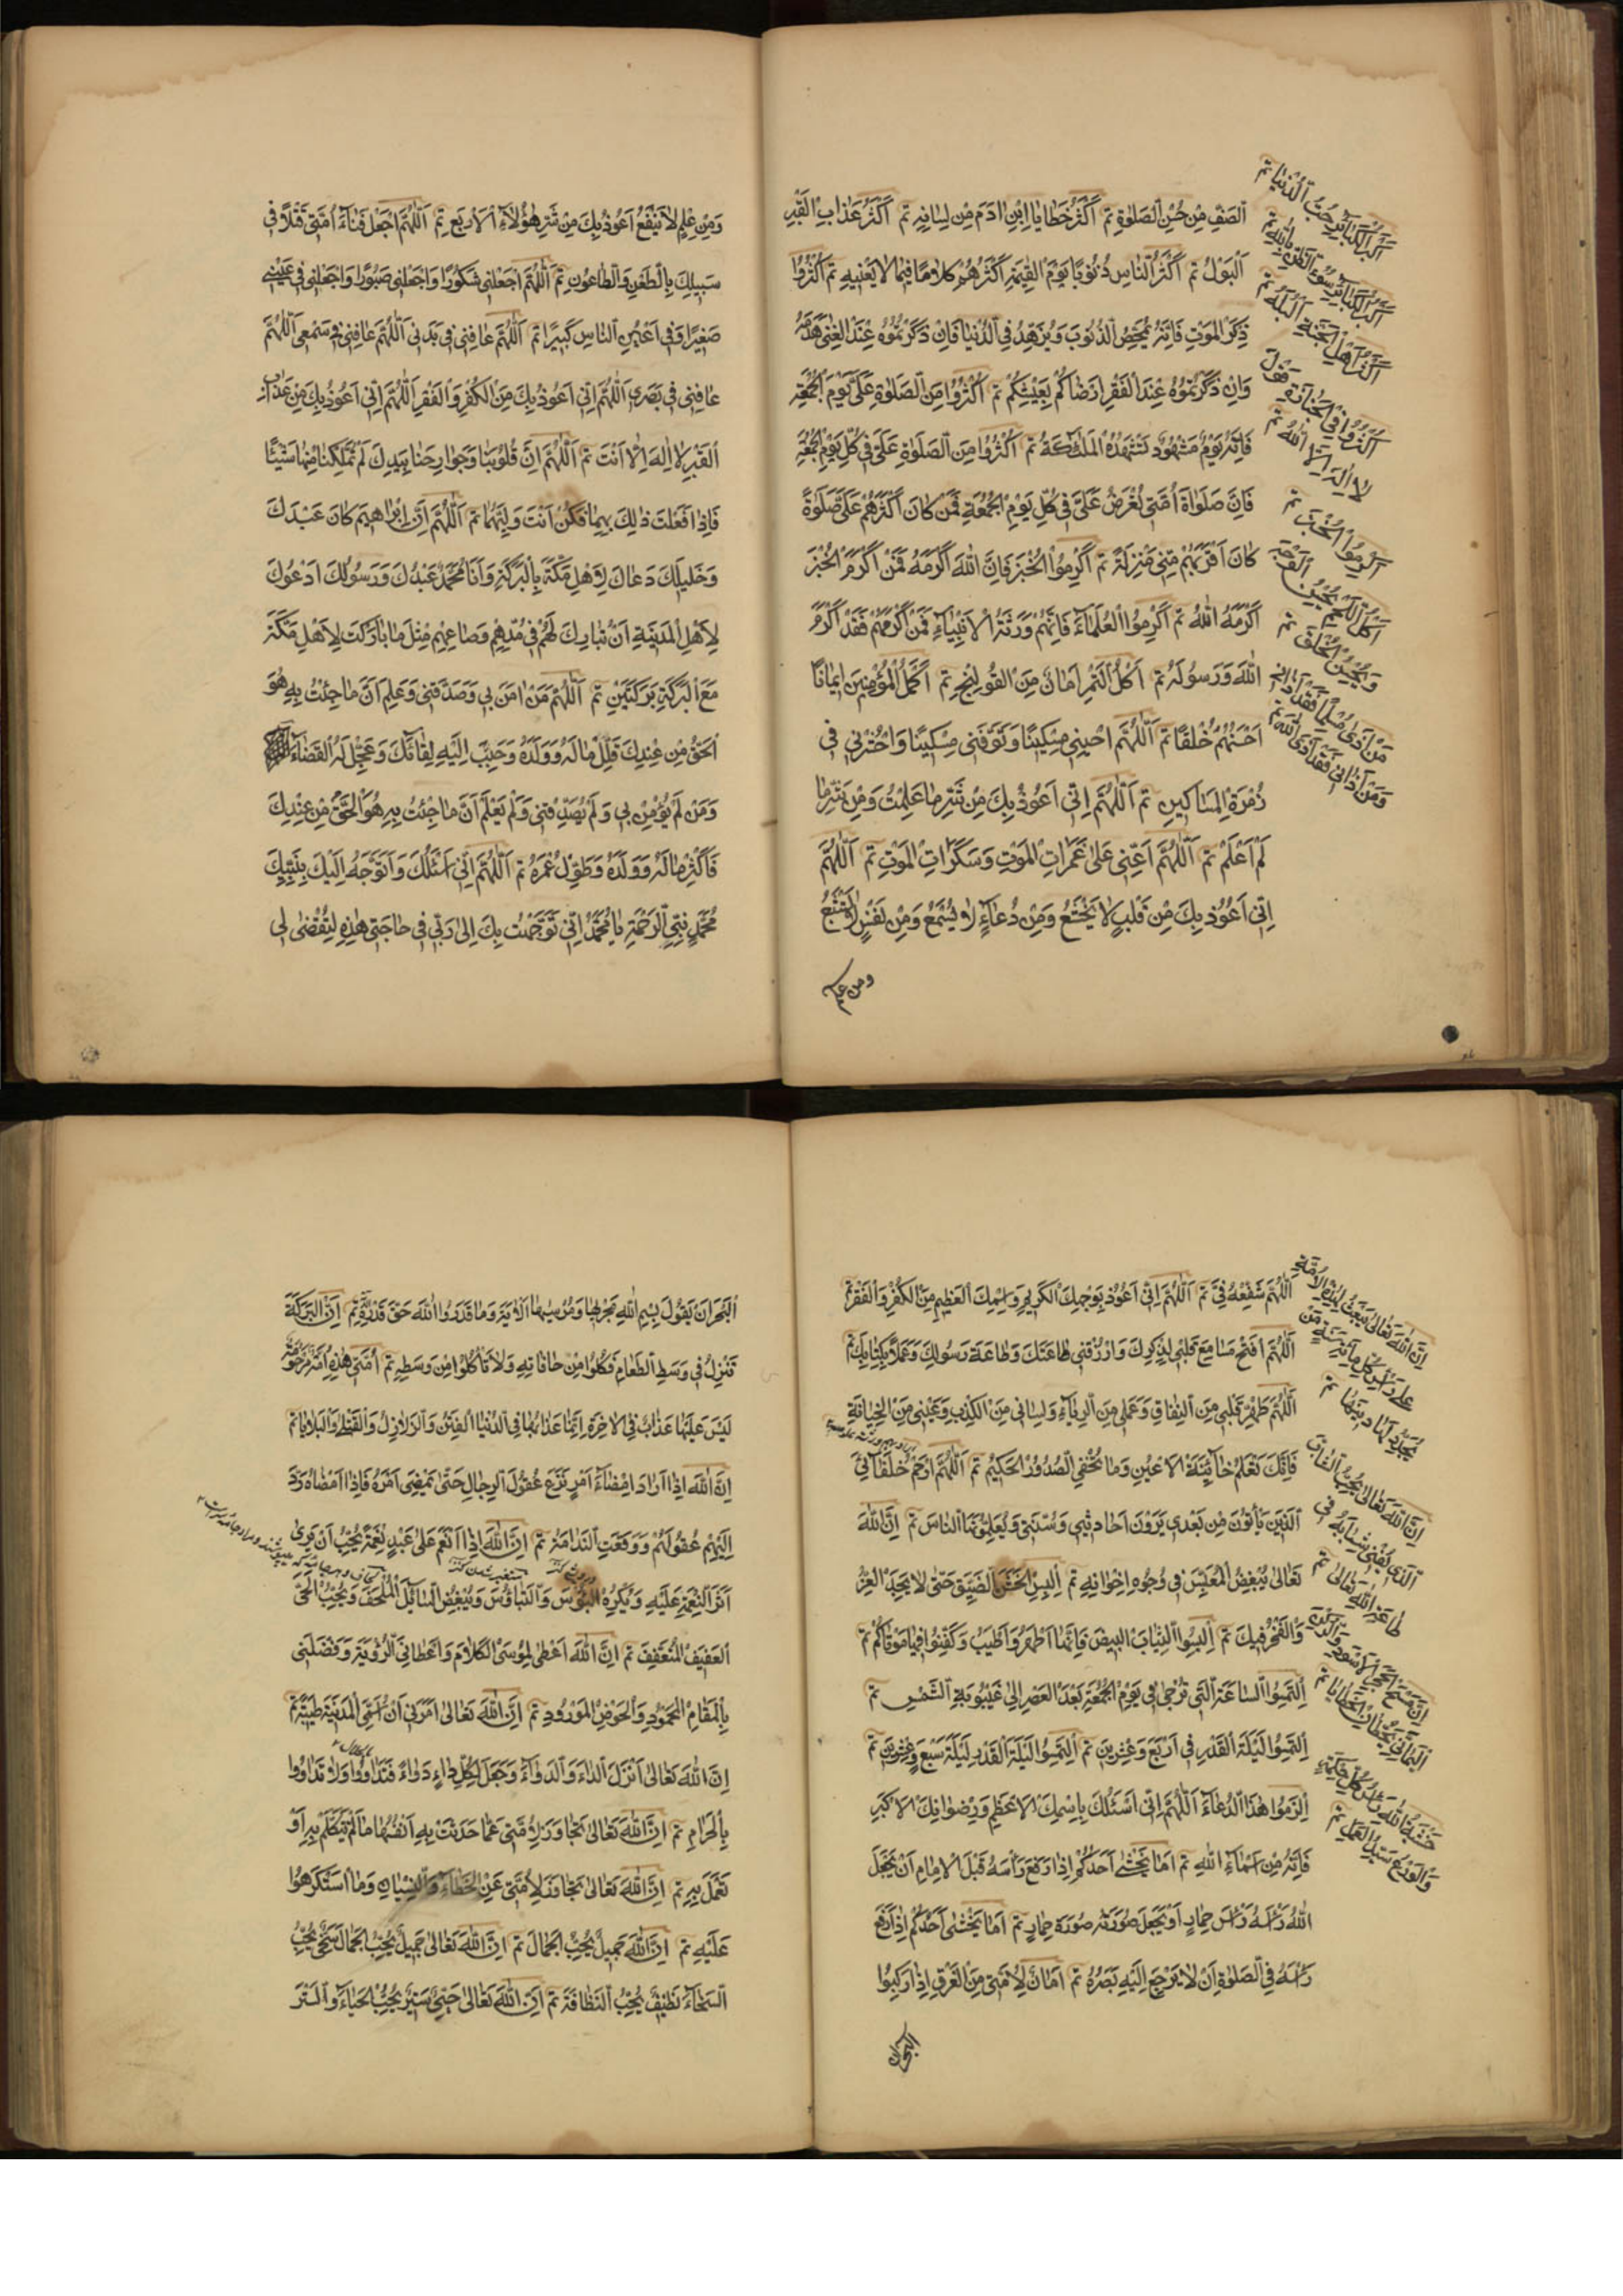 اَلصَّفِ مِنْ حُسْنِ الصَّلٰوةِ تم اَكْثَرُ خَطَايَا ابْنِ اٰدَمَ مِنْ لِسَانِهِ تم اَكْثَرُ عَذَابِ الْقَبْرِ
اَلْبَوْلُ تم اَكْثَرُ النَّاسِ ذُنُوبًا يَوْمَ الْقِيٰمَةِ اَكْثَرُهُمْ كَلَامًا فِيمَا لَا يَعْنِيهِ تم اَكْثِرُوا
ذِكْرَ الْمَوْتِ فَاِنَّهُ يُمَحِّصُ الذُّنُوبَ وَيُزَهِّدُ فِي الدُّنْيَا فَاِنْ ذَكَرْتُمُوهُ عِنْدَ الْغِنٰى هَدَمَهُ
وَاِنْ ذَكَرْتُمُوهُ عِنْدَ الْفَقْرِ اَرْضَاكُمْ بِعَيْشِكُمْ تم اَكْثِرُوا مِنَ الصَّلٰوةِ عَلَيَّ يَوْمَ الْجُمُعَةِ
فَاِنَّهُ يَوْمٌ مَشْهُودٌ تَشْهَدُهُ الْمَلٰئِكَةُ تم اَكْثِرُوا مِنَ الصَّلٰوةِ عَلَيَّ فِي كُلِّ يَوْمِ الْجُمُعَةِ
فَاِنَّ صَلٰوةَ اُمَّتِي تُعْرَضُ عَلَيَّ فِي كُلِّ يَوْمِ الْجُمُعَةِ فَمَنْ كَانَ اَكْثَرَهُمْ عَلَيَّ صَلٰوةً
كَانَ اَقْرَبَهُمْ مِنِّي مَنْزِلَةً تم اَكْرِمُوا الْخُبْزَ فَاِنَّ اللّٰهَ اَكْرَمَهُ فَمَنْ اَكْرَمَ الْخُبْزَ
اَكْرَمَهُ اللّٰهُ تم اَكْرِمُوا الْعُلَمَاءَ فَاِنَّهُمْ وَرَثَةُ الْاَنْبِيَاءِ فَمَنْ اَكْرَمَهُمْ فَقَدْ اَكْرَمَ
اللّٰهَ وَرَسُولَهُ تم اَكْلُ التَّمْرِ اَمَانٌ مِنَ الْقُولِنْجِ تم اَكْمَلُ الْمُؤْمِنِينَ اِيمَانًا
اَحْسَنُهُمْ خُلُقًا تم اَللّٰهُمَّ اَحْيِنِي مِسْكِينًا وَتَوَفَّنِي مِسْكِينًا وَاحْشُرْنِي فِي
زُمْرَةِ الْمَسَاكِينِ تم اَللّٰهُمَّ اِنِّي اَعُوذُ بِكَ مِنْ شَرِّ مَا عَلِمْتُ وَمِنْ شَرِّ مَا
لَمْ اَعْلَمْ تم اَللّٰهُمَّ اَعِنِّي عَلٰى غَمَرَاتِ الْمَوْتِ وَسَكَرَاتِ الْمَوْتِ تم اَللّٰهُمَّ
اِنِّي اَعُوذُ بِكَ مِنْ قَلْبٍ لَا يَخْشَعُ وَمِنْ دُعَاءٍ لَا يُسْمَعُ وَمِنْ نَفْسٍ لَا تَشْبَعُ
ومن علم
اَكْبَرُ الْكَبَائِرِ حُبُّ الدُّنْيَا تم
اَكْبَرُ الْكَبَائِرِ سُوءُ الظَّنِّ بِاللّٰهِ تم
اَكْثَرُ اَهْلِ الْجَنَّةِ الْبُلْهُ تم
اَكْثِرُوا فِي الْجَنَازَةِ قَوْلَ
لَا اِلٰهَ اِلَّا اللّٰهُ تم
اَكْرِمُوا الْخُبْزَ تم
اَكْلُ اللَّحْمِ يُحَسِّنُ الْوَجْهَ
وَيُحَسِّنُ الْخُلُقَ تم
مَنْ اٰذٰى مُسْلِمًا فَقَدْ اٰذَانِي
وَمَنْ اٰذَانِي فَقَدْ اٰذَى اللّٰهَ تم
وَمِنْ عِلْمٍ لَا يَنْفَعُ اَعُوذُ بِكَ مِنْ شَرِّ هٰؤُلَاءِ الْاَرْبَعِ تم اَللّٰهُمَّ اجْعَلْ فَنَاءَ اُمَّتِي قَتْلًا فِي
سَبِيلِكَ بِالطَّعْنِ وَالطَّاعُونِ تم اَللّٰهُمَّ اجْعَلْنِي شَكُورًا وَاجْعَلْنِي صَبُورًا وَاجْعَلْنِي فِي عَيْنِي
صَغِيرًا وَفِي اَعْيُنِ النَّاسِ كَبِيرًا تم اَللّٰهُمَّ عَافِنِي فِي بَدَنِي اَللّٰهُمَّ عَافِنِي فِي سَمْعِي اَللّٰهُمَّ
عَافِنِي فِي بَصَرِي اَللّٰهُمَّ اِنِّي اَعُوذُ بِكَ مِنَ الْكُفْرِ وَالْفَقْرِ اَللّٰهُمَّ اِنِّي اَعُوذُ بِكَ مِنْ عَذَابِ
الْقَبْرِ لَا اِلٰهَ اِلَّا اَنْتَ تم اَللّٰهُمَّ اِنَّ قُلُوبَنَا وَجَوَارِحَنَا بِيَدِكَ لَمْ تُمَلِّكْنَا مِنْهَا شَيْئًا
فَاِذَا فَعَلْتَ ذٰلِكَ بِهِمَا فَكُنْ اَنْتَ وَلِيَّهُمَا تم اَللّٰهُمَّ اِنَّ اِبْرَاهِيمَ كَانَ عَبْدَكَ
وَخَلِيلَكَ دَعَاكَ لِاَهْلِ مَكَّةَ بِالْبَرَكَةِ وَاَنَا مُحَمَّدٌ عَبْدُكَ وَرَسُولُكَ اَدْعُوكَ
لِاَهْلِ الْمَدِينَةِ اَنْ تُبَارِكَ لَهُمْ فِي مُدِّهِمْ وَصَاعِهِمْ مِثْلَ مَا بَارَكْتَ لِاَهْلِ مَكَّةَ
مَعَ الْبَرَكَةِ بَرَكَتَيْنِ تم اَللّٰهُمَّ مَنْ اٰمَنَ بِي وَصَدَّقَنِي وَعَلِمَ اَنَّ مَا جِئْتُ بِهِ هُوَ
الْحَقُّ مِنْ عِنْدِكَ فَاَقْلِلْ مَالَهُ وَوَلَدَهُ وَحَبِّبْ اِلَيْهِ لِقَائَكَ وَعَجِّلْ لَهُ الْقَضَاءَ
وَمَنْ لَمْ يُؤْمِنْ بِي وَلَمْ يُصَدِّقْنِي وَلَمْ يَعْلَمْ اَنَّ مَا جِئْتُ بِهِ هُوَ الْحَقُّ مِنْ عِنْدِكَ
فَاَكْثِرْ مَالَهُ وَوَلَدَهُ وَطَوِّلْ عُمْرَهُ تم اَللّٰهُمَّ اِنِّي اَسْئَلُكَ وَاَتَوَجَّهُ اِلَيْكَ بِنَبِيِّكَ
مُحَمَّدٍ نَبِيِّ الرَّحْمَةِ يَا مُحَمَّدُ اِنِّي تَوَجَّهْتُ بِكَ اِلٰى رَبِّي فِي حَاجَتِي هٰذِهِ لِتُقْضٰى لِي
اَللّٰهُمَّ شَفِّعْهُ فِيَّ تم اَللّٰهُمَّ اِنِّي اَعُوذُ بِوَجْهِكَ الْكَرِيمِ وَاسْمِكَ الْعَظِيمِ مِنَ الْكُفْرِ وَالْفَقْرِ تم
اَللّٰهُمَّ افْتَحْ مَسَامِعَ قَلْبِي لِذِكْرِكَ وَارْزُقْنِي طَاعَتَكَ وَطَاعَةَ رَسُولِكَ وَعَمَلًا بِكِتَابِكَ تم
اَللّٰهُمَّ طَهِّرْ قَلْبِي مِنَ النِّفَاقِ وَعَمَلِي مِنَ الرِّيَاءِ وَلِسَانِي مِنَ الْكَذِبِ وَعَيْنِي مِنَ الْخِيَانَةِ
فَاِنَّكَ تَعْلَمُ خَائِنَةَ الْاَعْيُنِ وَمَا تُخْفِي الصُّدُورُ الْحَكِيمُ تم اَللّٰهُمَّ ارْحَمْ خُلَفَائِيَ
الَّذِينَ يَأْتُونَ مِنْ بَعْدِي يَرْوُونَ اَحَادِيثِي وَسُنَّتِي وَيُعَلِّمُونَهَا النَّاسَ تم اِنَّ اللّٰهَ
تَعَالٰى يُبْغِضُ الْمُعَبِّسَ فِي وُجُوهِ اِخْوَانِهِ تم اِلْبَسِ الْخَشِنَ الضَّيِّقَ حَتّٰى لَا يَجِدَ الْعِزُّ
وَالْفَخْرُ فِيكَ تم اِلْبَسُوا الثِّيَابَ الْبِيضَ فَاِنَّهَا اَطْهَرُ وَاَطْيَبُ وَكَفِّنُوا فِيهَا مَوْتَاكُمْ تم
اِلْتَمِسُوا السَّاعَةَ الَّتِي تُرْجٰى فِي يَوْمِ الْجُمُعَةِ بَعْدَ الْعَصْرِ اِلٰى غَيْبُوبَةِ الشَّمْسِ تم
اِلْتَمِسُوا لَيْلَةَ الْقَدْرِ فِي اَرْبَعَ وَعِشْرِينَ تم اِلْتَمِسُوا لَيْلَةَ الْقَدْرِ لَيْلَةَ سَبْعٍ وَعِشْرِينَ تم
اِلْزَمُوا هٰذَا الدُّعَاءَ اَللّٰهُمَّ اِنِّي اَسْئَلُكَ بِاسْمِكَ الْاَعْظَمِ وَرِضْوَانِكَ الْاَكْبَرِ
فَاِنَّهُ مِنْ اَسْمَاءِ اللّٰهِ تم اَمَا يَخْشٰى اَحَدُكُمْ اِذَا رَفَعَ رَأْسَهُ قَبْلَ الْاِمَامِ اَنْ يَجْعَلَ
اللّٰهُ رَأْسَهُ رَأْسَ حِمَارٍ اَوْ يَجْعَلَ صُورَتَهُ صُورَةَ حِمَارٍ تم اَمَا يَخْشٰى اَحَدُكُمْ اِذَا رَفَعَ
رَأْسَهُ فِي الصَّلٰوةِ اَنْ لَا يَرْجِعَ اِلَيْهِ بَصَرُهُ تم اَمَانٌ لِاُمَّتِي مِنَ الْغَرَقِ اِذَا رَكِبُوا
البحران
اِنَّ اللّٰهَ تَعَالٰى يَبْعَثُ لِهٰذِهِ الْاُمَّةِ
عَلٰى رَأْسِ كُلِّ مِائَةِ سَنَةٍ مَنْ
يُجَدِّدُ لَهَا دِينَهَا تم
اِنَّ اللّٰهَ تَعَالٰى يُحِبُّ الشَّابَّ
الَّذِي يُفْنِي شَبَابَهُ فِي
طَاعَةِ اللّٰهِ تَعَالٰى تم
اِنَّ مَسْحَ الْحَجَرِ الْاَسْوَدِ وَالرُّكْنِ
الْيَمَانِيِّ يَحُطَّانِ الْخَطَايَا تم
خَشْيَةُ اللّٰهِ رَأْسُ كُلِّ حِكْمَةٍ
وَالْوَرَعُ سَيِّدُ الْعَمَلِ تم
اَلْبَحْرَ اَنْ يَقُولَ بِسْمِ اللّٰهِ مَجْرٰيهَا وَمُرْسٰيهَا الْاٰيَةَ وَمَا قَدَرُوا اللّٰهَ حَقَّ قَدْرِهِ تم اِنَّ الْبَرَكَةَ
تَنْزِلُ فِي وَسَطِ الطَّعَامِ فَكُلُوا مِنْ حَافَاتِهِ وَلَا تَأْكُلُوا مِنْ وَسَطِهِ تم اُمَّتِي هٰذِهِ اُمَّةٌ مَرْحُومَةٌ
لَيْسَ عَلَيْهَا عَذَابٌ فِي الْاٰخِرَةِ اِنَّمَا عَذَابُهَا فِي الدُّنْيَا الْفِتَنُ وَالزَّلَازِلُ وَالْقَتْلُ وَالْبَلَايَا تم
اِنَّ اللّٰهَ اِذَا اَرَادَ اِمْضَاءَ اَمْرٍ نَزَعَ عُقُولَ الرِّجَالِ حَتّٰى يَمْضِيَ اَمْرُهُ فَاِذَا اَمْضَاهُ رَدَّ
اِلَيْهِمْ عُقُولَهُمْ وَوَقَعَتِ النَّدَامَةُ تم اِنَّ اللّٰهَ اِذَا اَنْعَمَ عَلٰى عَبْدٍ نِعْمَةً يُحِبُّ اَنْ يَرٰى
اَثَرَ النِّعْمَةِ عَلَيْهِ وَيَكْرَهُ الْبُؤْسَ وَالتَّبَاؤُسَ وَيُبْغِضُ السَّائِلَ الْمُلْحِفَ وَيُحِبُّ الْحَيِيَّ
الْعَفِيفَ الْمُتَعَفِّفَ تم اِنَّ اللّٰهَ اَعْطٰى لِمُوسَى الْكَلَامَ وَاَعْطَانِيَ الرُّؤْيَةَ وَفَضَّلَنِي
بِالْمَقَامِ الْمَحْمُودِ وَالْحَوْضِ الْمَوْرُودِ تم اِنَّ اللّٰهَ تَعَالٰى اَمَرَنِي اَنْ اُسَمِّيَ الْمَدِينَةَ طَيِّبَةً تم
اِنَّ اللّٰهَ تَعَالٰى اَنْزَلَ الدَّاءَ وَالدَّوَاءَ وَجَعَلَ لِكُلِّ دَاءٍ دَوَاءً فَتَدَاوُوا وَلَا تَدَاوُوا
بِالْحَرَامِ تم اِنَّ اللّٰهَ تَعَالٰى تَجَاوَزَ لِاُمَّتِي عَمَّا حَدَّثَتْ بِهِ اَنْفُسُهَا مَا لَمْ تَتَكَلَّمْ بِهِ اَوْ
تَعْمَلْ بِهِ تم اِنَّ اللّٰهَ تَعَالٰى تَجَاوَزَ لِاُمَّتِي عَنِ الْخَطَاءِ وَالنِّسْيَانِ وَمَا اسْتُكْرِهُوا
عَلَيْهِ تم اِنَّ اللّٰهَ جَمِيلٌ يُحِبُّ الْجَمَالَ تم اِنَّ اللّٰهَ تَعَالٰى جَمِيلٌ يُحِبُّ الْجَمَالَ سَخِيٌّ يُحِبُّ
السَّخَاءَ نَظِيفٌ يُحِبُّ النَّظَافَةَ تم اِنَّ اللّٰهَ تَعَالٰى حَيِيٌّ سَتِيرٌ يُحِبُّ الْحَيَاءَ وَالسَّتْرَ